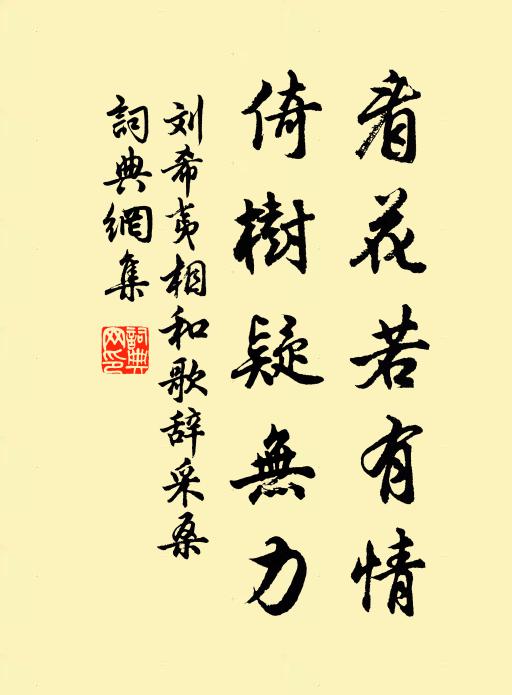 看花若有情
倚樹疑無力
刘希夷相和歌辞采桑
詞典網集
詞典
网印